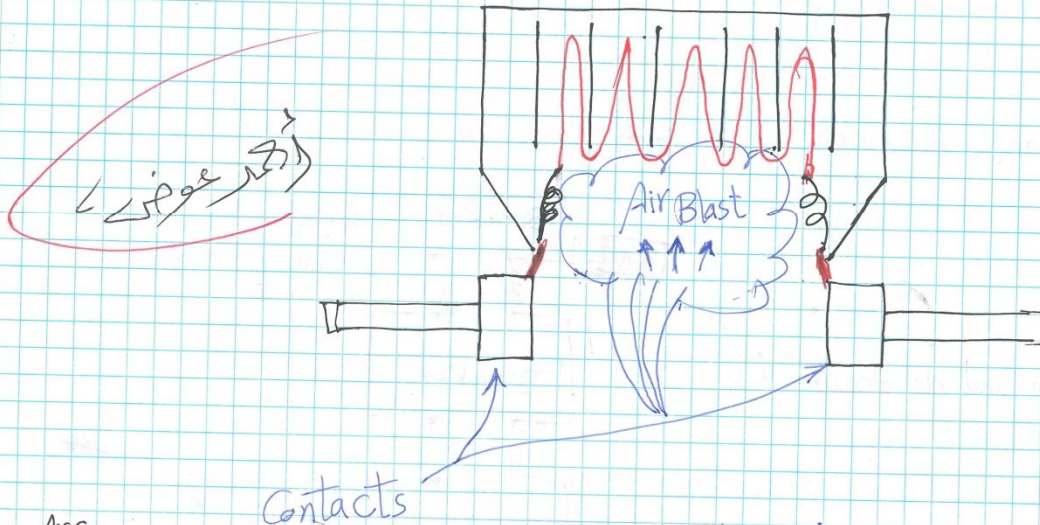 أحمد عوض
Air Blast
Contacts
Arc